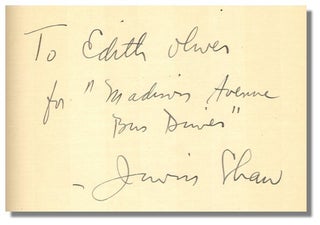 To Edith Oliver
for "Madison Avenue
Bus Driver"
- Irwin Shaw